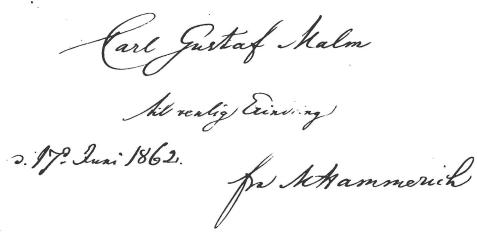 Carl Gustaf Malm
til venlig Erindring
d. 17de Juni 1862.
fra M Hammerich